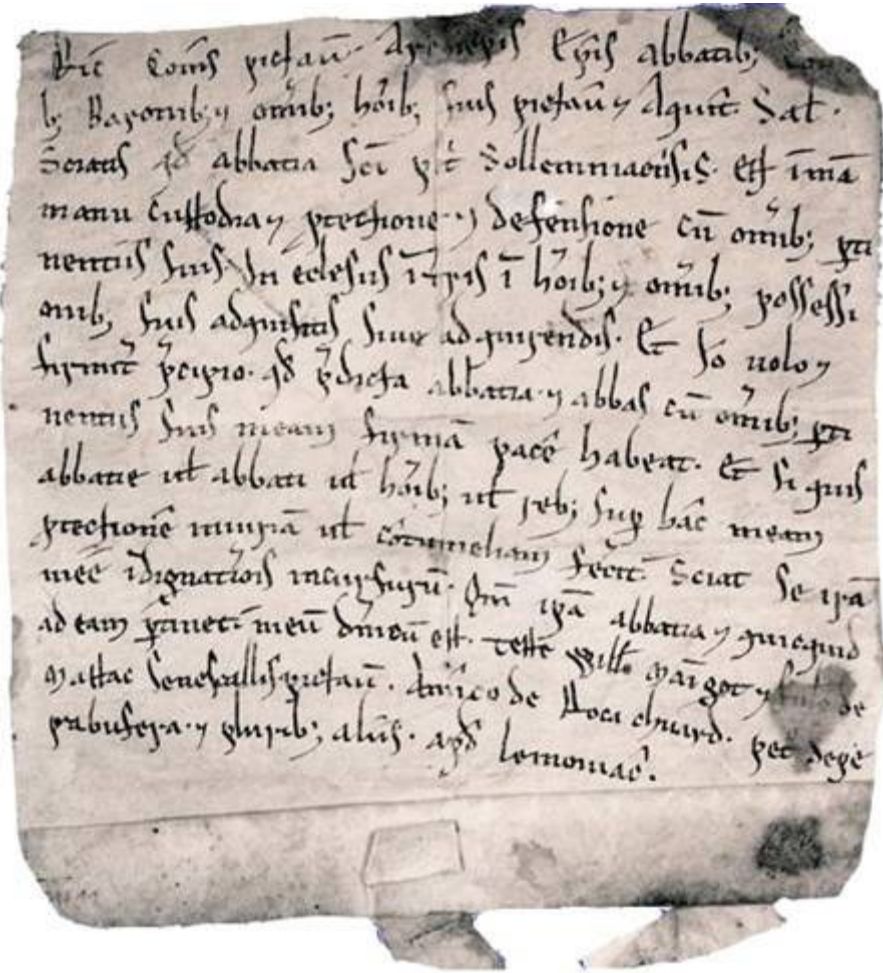 Ric̄ Com̄s pictaū. Archiepis Ep̄is abbatib;
b; Baronib; ⁊ om̄ib; hōib; suis pictaū ⁊ Aquit̄. Sal̄.
Sciatis qđ abbatia Sc̄i pet̄ Sollemniac̄sis. est ī mā
manu custodia ⁊ ꝓtectione ⁊ defensione cū om̄ib; ꝑti
nentiis suis In eclesiis ī t̄ris ī hōib; ⁊ om̄ib; possessi
onib; suis adquisitis siue adquirendis. Et Iō uolo ⁊
firmit̄ p̄cipio. qđ p̄dicta abbatia ⁊ abbas cū om̄ib; ꝑti
nentiis suis meam firmā pacē habeat. Et si quis
abbatie ul̄ abbati ul̄ hōib; ul̄ reb; sup̄ hāc meam
ꝓtectionē iniuriā ul̄ cōtumeliam fec̄it. Sciat se irā
meē īdignatiōis incursurū. Qm̄ ip̄a abbatia ⁊ quicquid
ad eam p̄tinet ī meū dn̄ieū est. Teste Will̄o Māigot ⁊ de
Mattac senescallis pictaū. Am̄ico de Roca chuard. pet̄ de pe
trabufera. ⁊ plurib; aliis. apđ lemouiac̄.